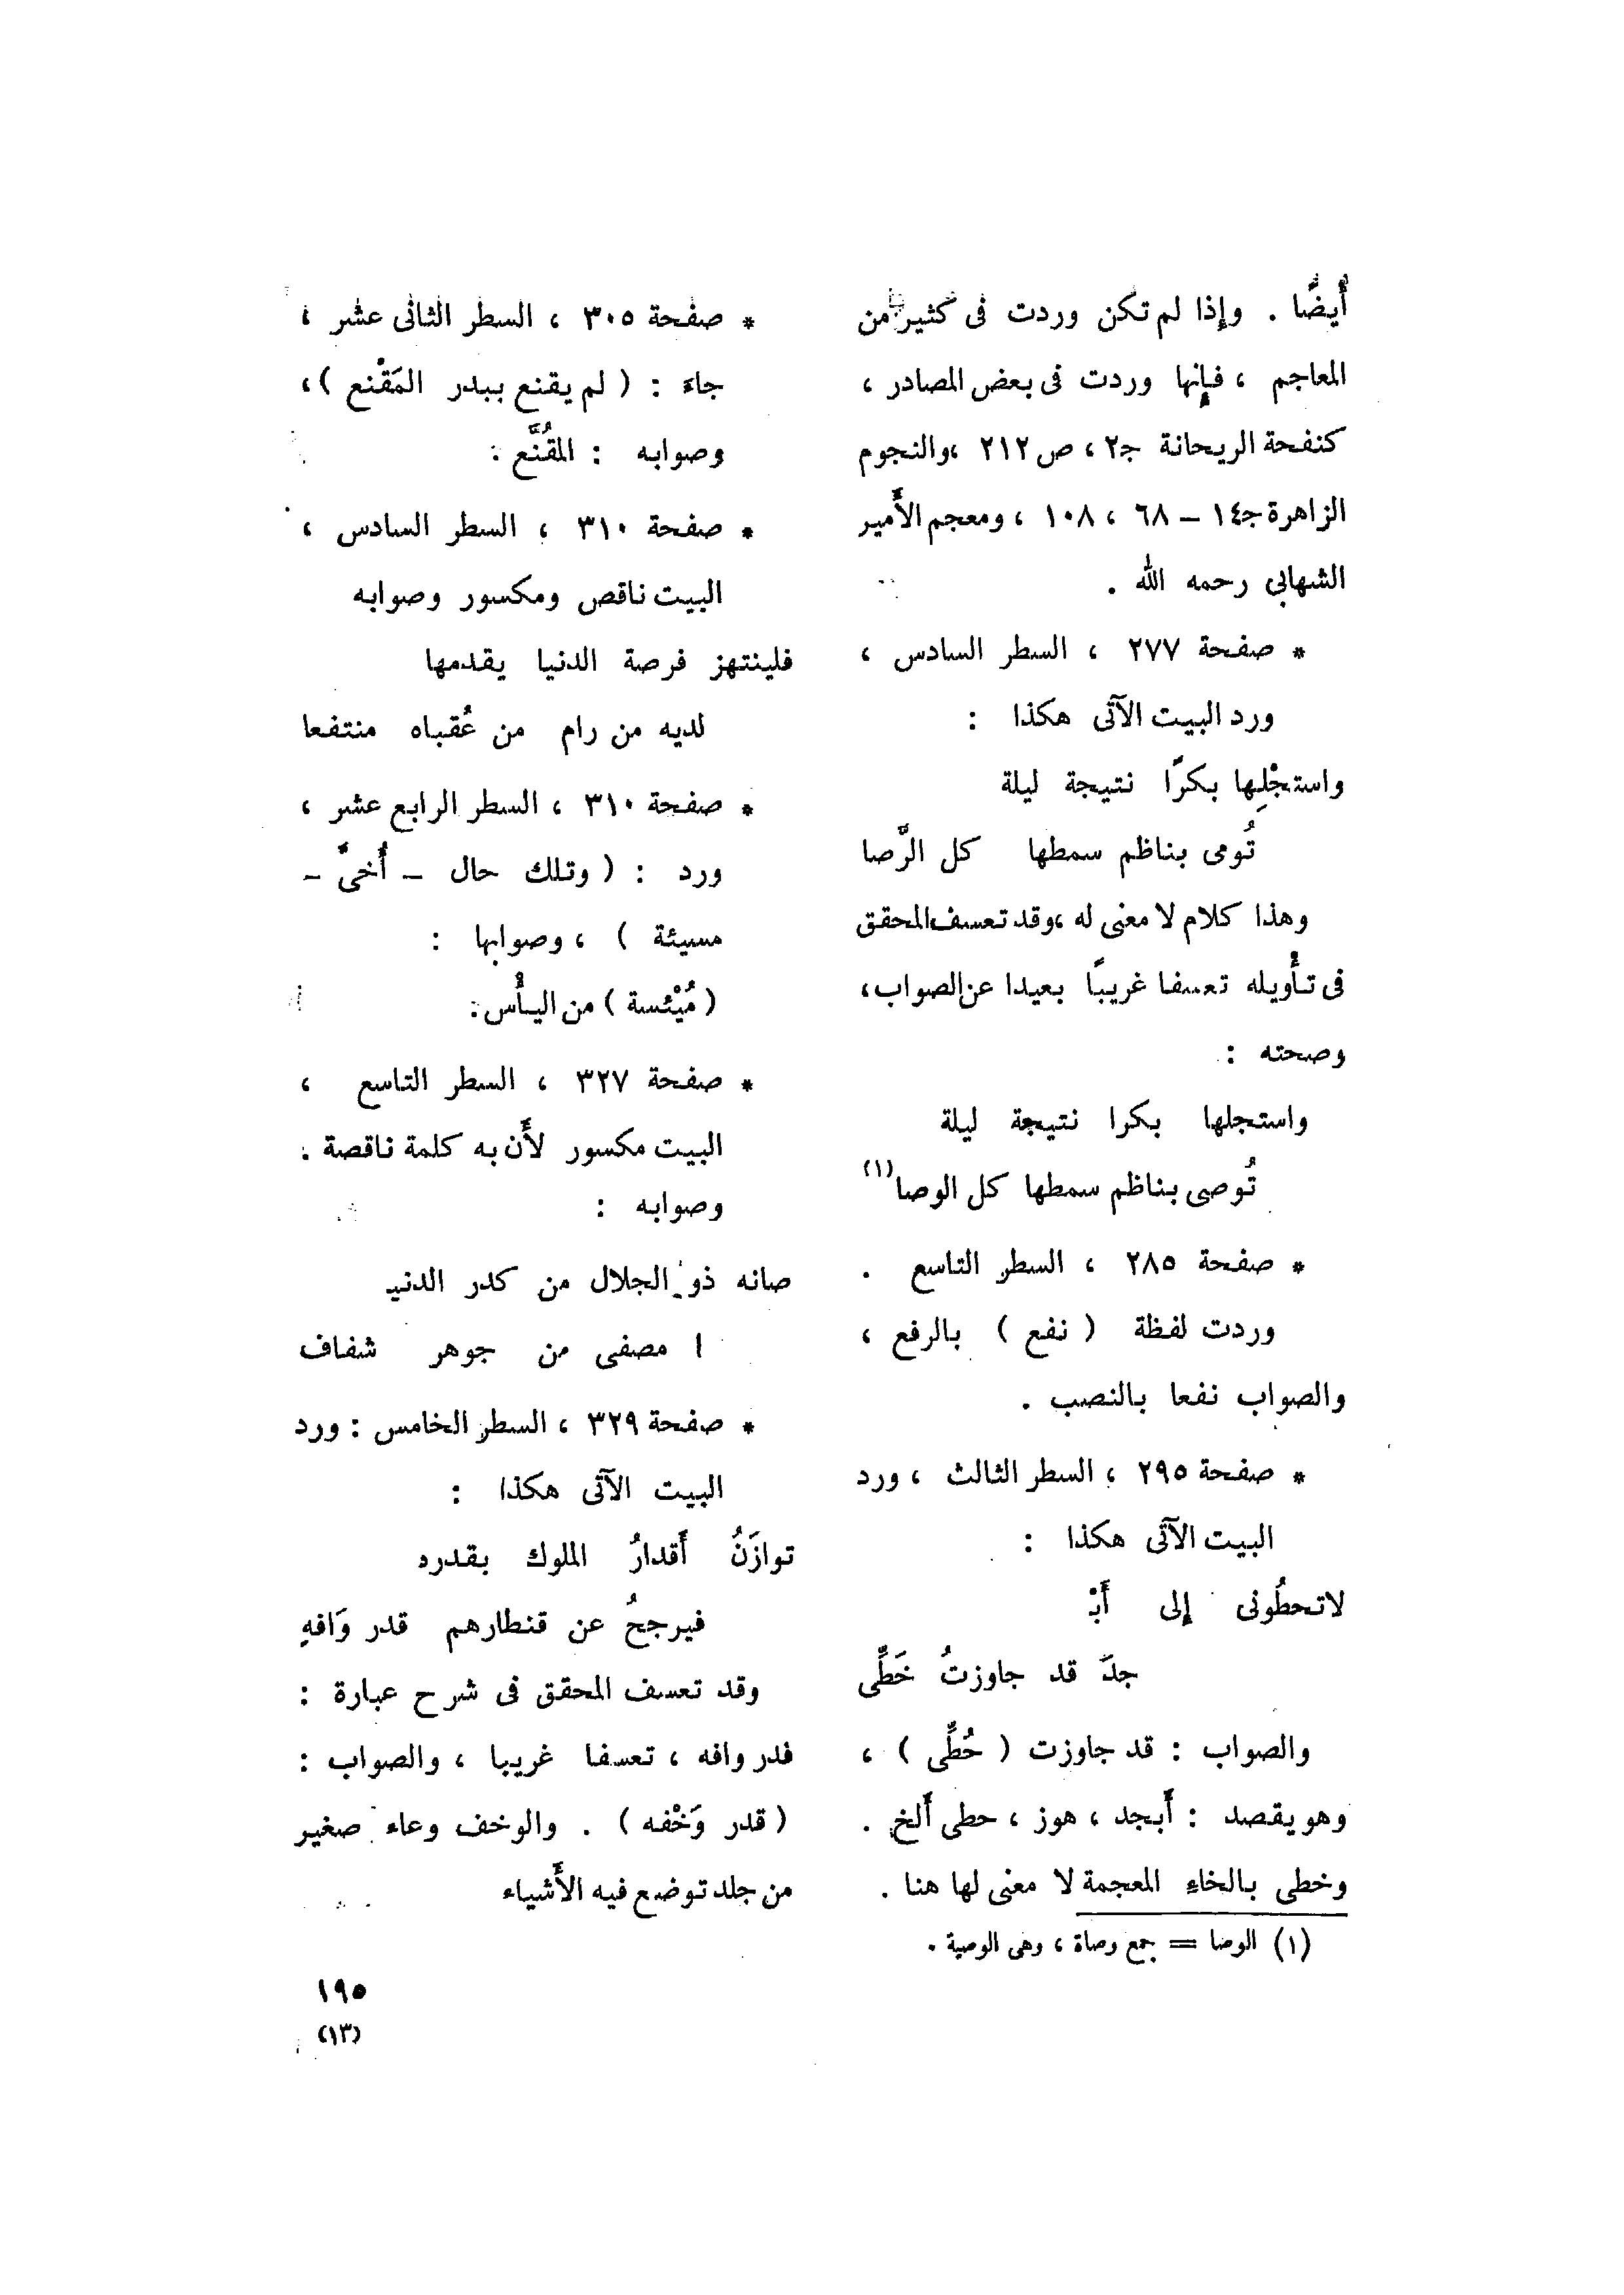 أيضًا . وإذا لم تكن وردت فى كثير من
المعاجم ، فإنها وردت فى بعض المصادر ،
كنفحة الريحانة ج٢ ، ص ٢١٢ ، والنجوم
الزاهرة ج١٤ – ٦٨ ، ١٠٨ ، ومعجم الأمير
الشهابى رحمه الله .
* صفحة ٢٧٧ ، السطر السادس ،
ورد البيت الآتى هكذا :
واستجْلِها بكرًا نتيجة ليلة
تُومى بناظم سمطها كل الرَّصا
وهذا كلام لا معنى له ، وقد تعسف المحقق
فى تأويله تعسفا غريبًا بعيدا عن الصواب ،
وصحته :
واستجلها بكرا نتيجة ليلة
تُوصى بناظم سمطها كل الوصا (١)
* صفحة ٢٨٥ ، السطر التاسع .
وردت لفظة ( نفع ) بالرفع ،
والصواب نفعا بالنصب .
* صفحة ٢٩٥ ، السطر الثالث ، ورد
البيت الآتى هكذا :
لاتحطُونى إلى أَبْ
جدَ قد جاوزتُ خَطِّى
والصواب : قد جاوزت ( حُطِّى ) ،
وهو يقصد : أبجد ، هوز ، حطى ألخ .
وخطى بالخاءِ المعجمة لا معنى لها هنا .
(١) الوصا = جمع وصاة ، وهى الوصية .
* صفحة ٣٠٥ ، السطر الثانى عشر ،
جاءَ : ( لم يقنع ببدر المَقْنع ) ،
وصوابه : المُقَنَّع .
* صفحة ٣١٠ ، السطر السادس ،
البيت ناقص ومكسور وصوابه
فلينتهز فرصة الدنيا يقدمها
لديه من رام من عُقباه منتفعا
* صفحة ٣١٠ ، السطر الرابع عشر ،
ورد : ( وتلك حال – أُخىَّ –
مسيئة ) ، وصوابها :
( مُيْئسة ) من اليأْس .
* صفحة ٣٢٧ ، السطر التاسع ،
البيت مكسور لأَن به كلمة ناقصة .
وصوابه :
صانه ذو الجلال من كدر الدنيـ
ا مصفى من جوهر شفاف
* صفحة ٣٢٩ ، السطر الخامس : ورد
البيت الآتى هكذا :
توازَنُ أَقدارُ الملوك بقدره
فيرجحُ عن قنطارهم قدر وَافهِ
وقد تعسف المحقق فى شرح عبارة :
قدر وافه ، تعسفا غريبا ، والصواب :
( قدر وَخْفه ) . والوخف وعاء صغير
من جلد توضع فيه الأَشياء
١٩٥
(١٣)